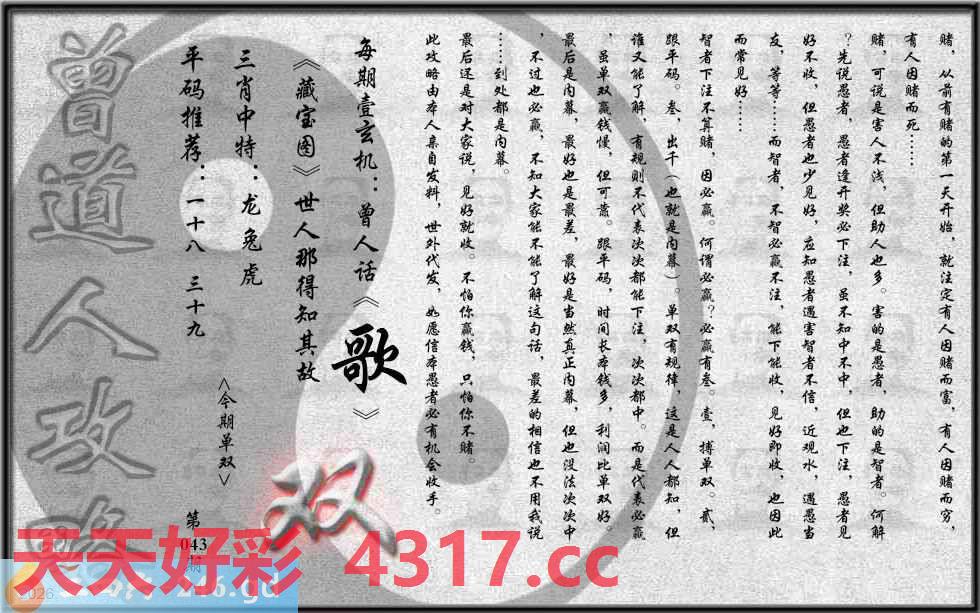 赌，从前有赌的第一天开始，就注定有人因赌而富，有人因赌而穷，
有人因赌而死……
赌，可说是害人不浅，但助人也多。害的是愚者，助的是智者。何解
？先说愚者，愚者逢开奖必下注，虽不知中不中，但也下注，愚者见
好不收，但愚者也少见好，应知愚者遇害智者不信，近观水，遇愚当
友，等等……而智者，不智必赢不注，能下能收，见好即收，也因此
而常见好……
智者下注不算赌，因必赢。何谓必赢？必赢有叁。壹，搏单双。贰，
跟平码。叁，出千（也就是内幕）。单双有规律，这是人人都知，但
谁又能了解，有规则不代表次次都能下注，次次都中。而是代表必赢
，虽单双赢钱慢，但可靠。跟平码，时间长本钱多，利润比单双好。
最后是内幕，最好也是最差，最好是当然真正内幕，但也没法次次中
，不过也必赢，不知大家能不能了解这句话，最差的相信也不用我说
……到处都是内幕。
最后还是对大家说，见好就收。不怕你赢钱，只怕你不赌。
此攻略由本人亲自发料，世外代发，如愿信本愚者必有机会收手。
每期壹玄机：曾人话《歌》
《藏宝图》世人那得知其故
三肖中特：龙兔虎
平码推荐：一十八 三十九
<今期单双>
双
第
043
期
曾道人攻略
天天好彩 4317.cc
246.gd
2026